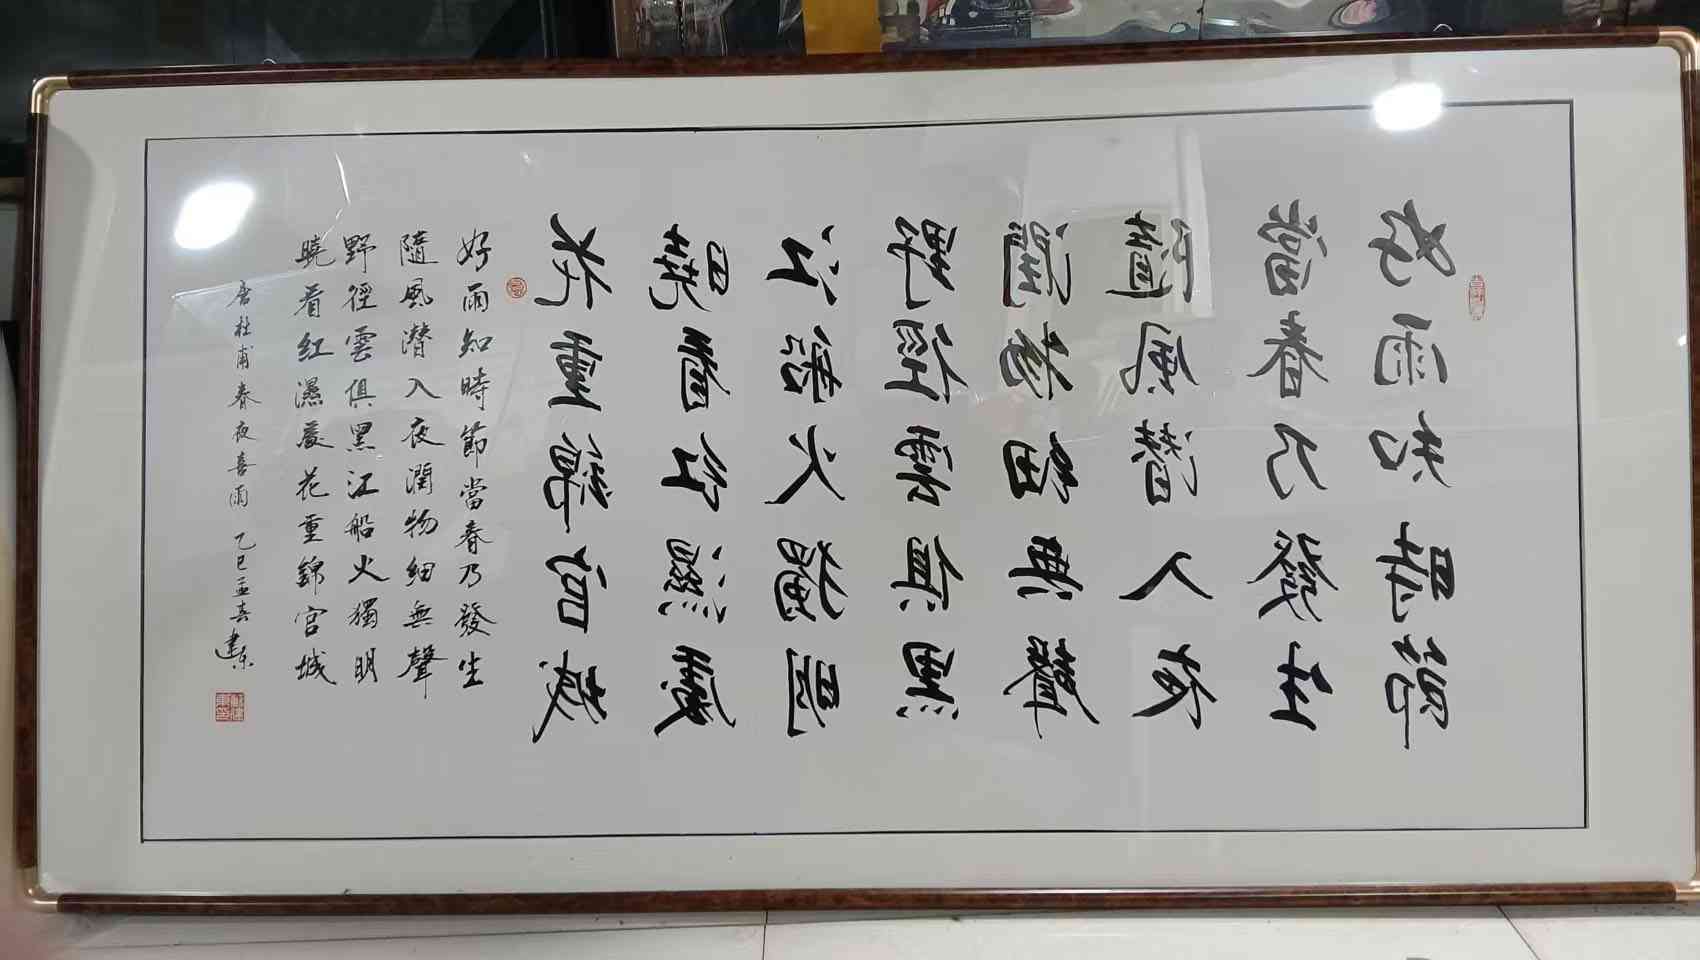 好雨知時節
當春乃發生
隨風潛入夜
潤物細無聲
野徑雲俱黑
江船火獨明
曉看紅濕處
花重錦官城
好雨知時節當春乃發生
隨風潛入夜潤物細無聲
野徑雲俱黑江船火獨明
曉看紅濕處花重錦官城
唐杜甫春夜喜雨 乙巳孟春建东